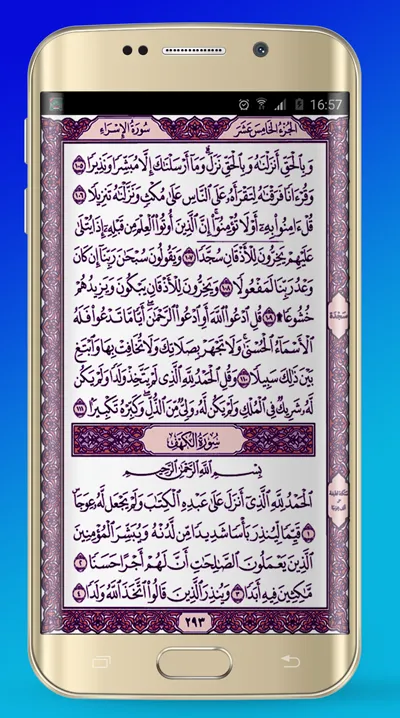 16:57
سُورَةُ الإِسْرَاءِ الجُزْءُ الخَامِسَ عَشَرَ
وَبِالْحَقِّ أَنزَلْنَاهُ وَبِالْحَقِّ نَزَلَ ۗ وَمَا أَرْسَلْنَاكَ إِلَّا مُبَشِّرًا وَنَذِيرًا ١٠٥
وَقُرْءَانًا فَرَقْنَاهُ لِتَقْرَأَهُ عَلَى النَّاسِ عَلَىٰ مُكْثٍ وَنَزَّلْنَاهُ تَنزِيلًا ١٠٦
قُلْ ءَامِنُوا بِهِ أَوْ لَا تُؤْمِنُوا ۚ إِنَّ الَّذِينَ أُوتُوا الْعِلْمَ مِن قَبْلِهِ إِذَا يُتْلَىٰ
عَلَيْهِمْ يَخِرُّونَ لِلْأَذْقَانِ سُجَّدًا ١٠٧ وَيَقُولُونَ سُبْحَٰنَ رَبِّنَا إِن كَانَ
وَعْدُ رَبِّنَا لَمَفْعُولًا ١٠٨ وَيَخِرُّونَ لِلْأَذْقَانِ يَبْكُونَ وَيَزِيدُهُمْ
خُشُوعًا ۩ ١٠٩ قُلِ ادْعُوا اللَّهَ أَوِ ادْعُوا الرَّحْمَٰنَ ۖ أَيًّا مَّا تَدْعُوا فَلَهُ
الْأَسْمَاءُ الْحُسْنَىٰ ۚ وَلَا تَجْهَرْ بِصَلَاتِكَ وَلَا تُخَافِتْ بِهَا وَابْتَغِ
بَيْنَ ذَٰلِكَ سَبِيلًا ١١٠ وَقُلِ الْحَمْدُ لِلَّهِ الَّذِي لَمْ يَتَّخِذْ وَلَدًا وَلَمْ يَكُن
لَّهُ شَرِيكٌ فِي الْمُلْكِ وَلَمْ يَكُن لَّهُ وَلِيٌّ مِّنَ الذُّلِّ ۖ وَكَبِّرْهُ تَكْبِيرًا ١١١
سُورَةُ الكَهْفِ
بِسْمِ اللَّهِ الرَّحْمَٰنِ الرَّحِيمِ
الْحَمْدُ لِلَّهِ الَّذِي أَنزَلَ عَلَىٰ عَبْدِهِ الْكِتَٰبَ وَلَمْ يَجْعَل لَّهُ عِوَجًا
١ قَيِّمًا لِّيُنذِرَ بَأْسًا شَدِيدًا مِّن لَّدُنْهُ وَيُبَشِّرَ الْمُؤْمِنِينَ
الَّذِينَ يَعْمَلُونَ الصَّٰلِحَٰتِ أَنَّ لَهُمْ أَجْرًا حَسَنًا ٢
مَّٰكِثِينَ فِيهِ أَبَدًا ٣ وَيُنذِرَ الَّذِينَ قَالُوا اتَّخَذَ اللَّهُ وَلَدًا ٤
٢٩٣
سجدة